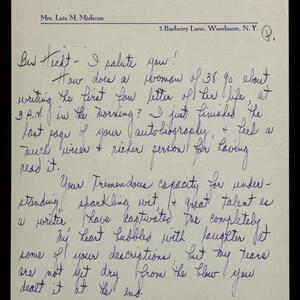 Mrs. Lois M. Mishcon
3 Barberry Lane, Woodmere, N. Y.
P.
Ben Hecht - I salute you!
How does a woman of 38 go about
writing the first fan letter of her life, at
3 A.M. in the morning? I just finished the
last page of your autobiography, & feel a
much wiser & richer person for having
read it.
Your tremendous capacity for under-
standing, sparkling wit, & great talent as
a writer, have captivated me completely.
My heart bubbled with laughter at
some of your descriptions, but my tears
are not yet dry from the blow you
dealt it at the end.